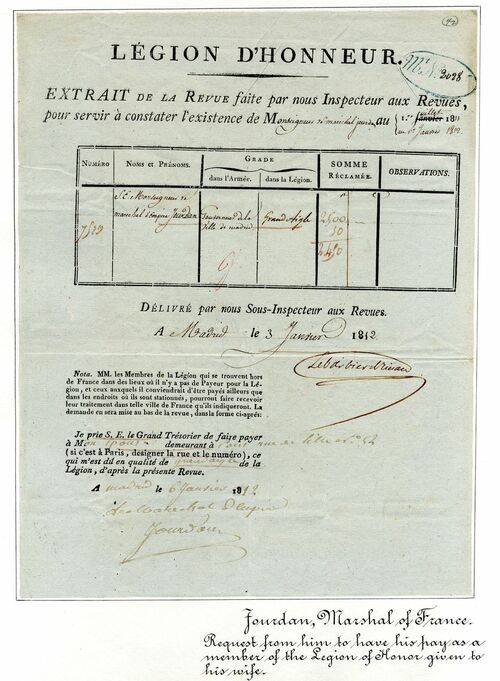 42
LÉGION D'HONNEUR.
Mt. N. 3028
EXTRAIT DE LA REVUE faite par nous Inspecteur aux Revues,
pour servir à constater l'existence de Monseigneur le maréchal Jourdan au { 1.er Janvier Juillet 1811
au 1er Janvier 1812
NUMÉRO
NOMS ET PRÉNOMS.
GRADE
dans l'Armée.
dans la Légion.
SOMME
RÉCLAMÉE.
OBSERVATIONS.
S.E. Monseigneur le
maréchal d'Empire Jourdan
Gouverneur de la
ville de madrid
Grand Aigle
2500
50
2450
DÉLIVRÉ par nous Sous-Inspecteur aux Revues.
A Madrid le 3 Janvier 1812
Nota. MM. les Membres de la Légion qui se trouvent hors
de France dans des lieux où il n'y a pas de Payeur pour la Lé-
gion, et ceux auxquels il conviendrait d'être payés ailleurs que
dans les endroits où ils sont stationnés, pourront faire recevoir
leur traitement dans telle ville de France qu'ils indiqueront. La
demande en sera mise au bas de la revue, dans la forme ci-après:
Je prie S. E. le Grand Trésorier de faire payer
à Mon épouse demeurant à Paris rue de lille n.° 52
(si c'est à Paris, désigner la rue et le numéro), ce
qui m'est dû en qualité de grand aigle de la
Légion, d'après la présente Revue.
A madrid le 6 Janvier 1812
Le Maréchal d'Empire
Jourdan
Jourdan, Marshal of France.
Request from him to have his pay as a
member of the Legion of Honor given to
his wife.